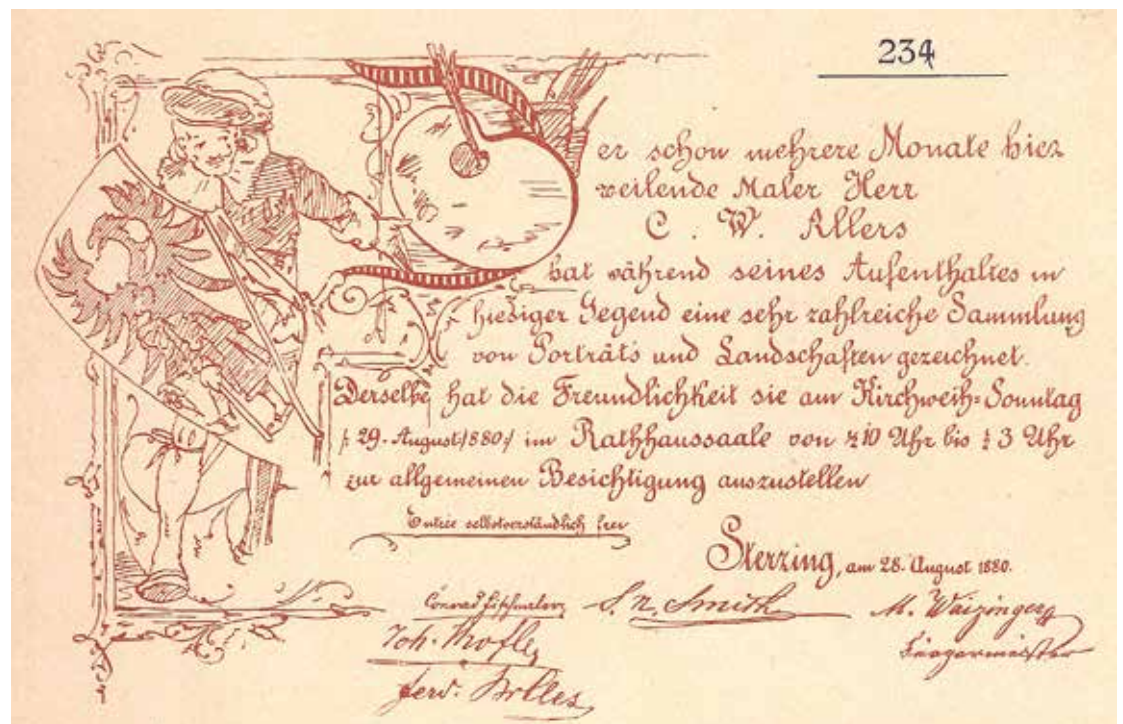 234
Der schon mehrere Monate hier
weilende Maler Herr
C. W. Allers
hat während seines Aufenthaltes in
hiesiger Gegend eine sehr zahlreiche Sammlung
von Porträts und Landschaften gezeichnet.
Derselbe hat die Freundlichkeit sie am Kirchweih-Sonntag
/: 29. August 1880 :/ im Rathhaussaale von ½10 Uhr bis ½3 Uhr
zur allgemeinen Besichtigung auszustellen
Entrée selbstverständlich frei
Sterzing, am 28. August 1880.
Conrad Fischnaler S. N. Smith M. Waizinger
Joh. Bürgermeister
Ferd.